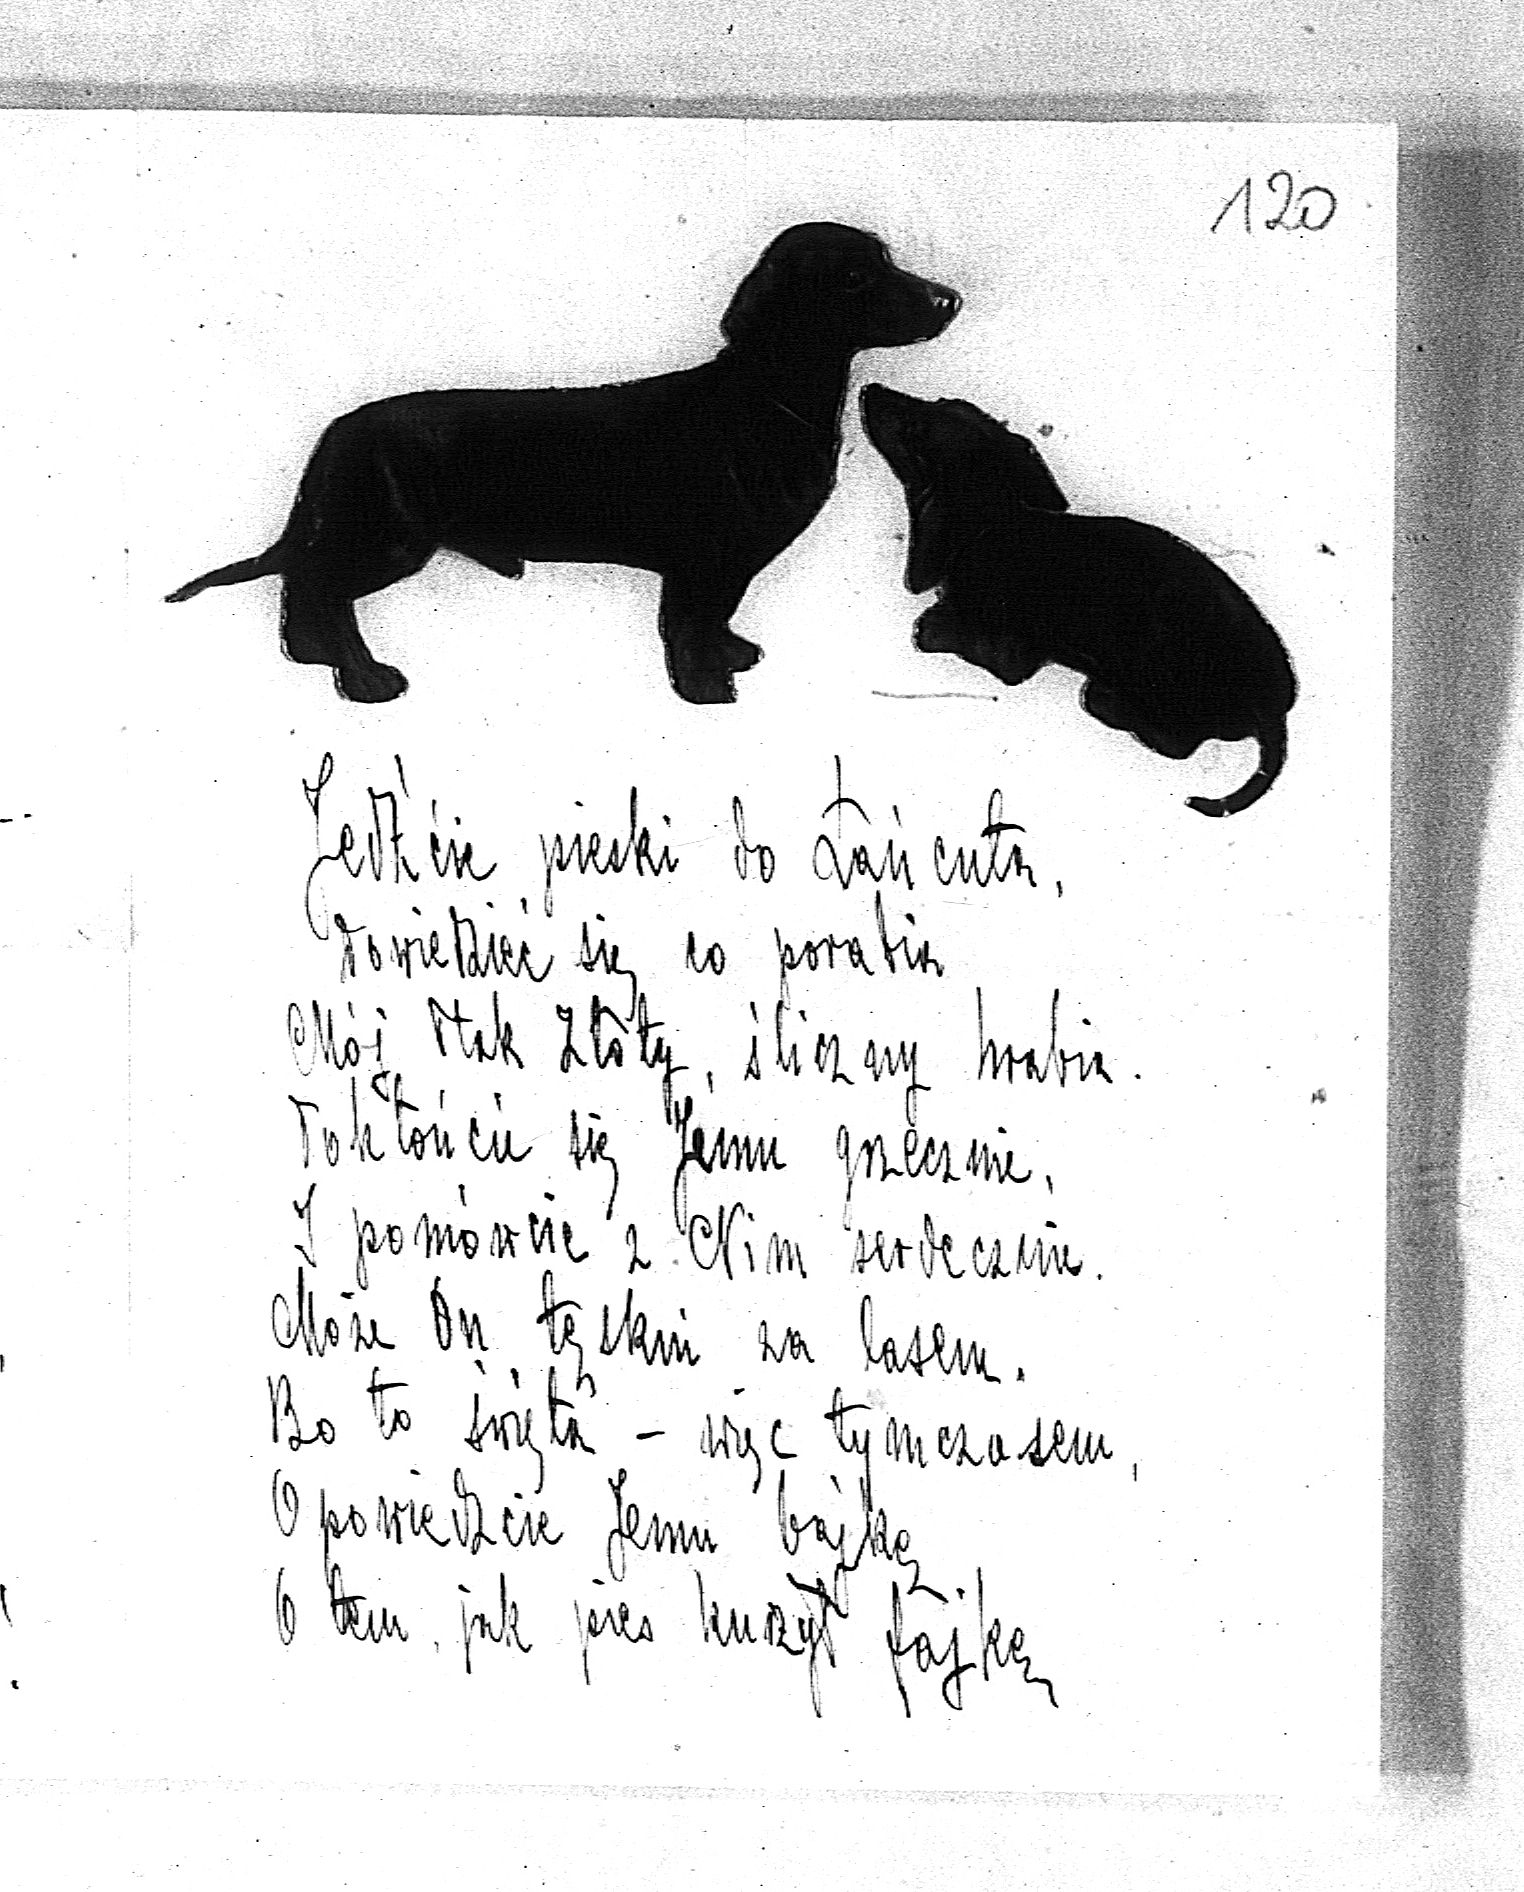 120
Jedźcie pieski do Łańcuta,
Dowiedzieć się co porabia
Mój Ptak Złoty, śliczny hrabia.
Pokłońcie się Jemu grzecznie,
I pomówcie z Nim serdecznie.
Może On tęskni za lasem.
Bo to święta – więc tymczasem,
Opowiedzcie Jemu bajkę
O tem, jak pies kurzył fajkę